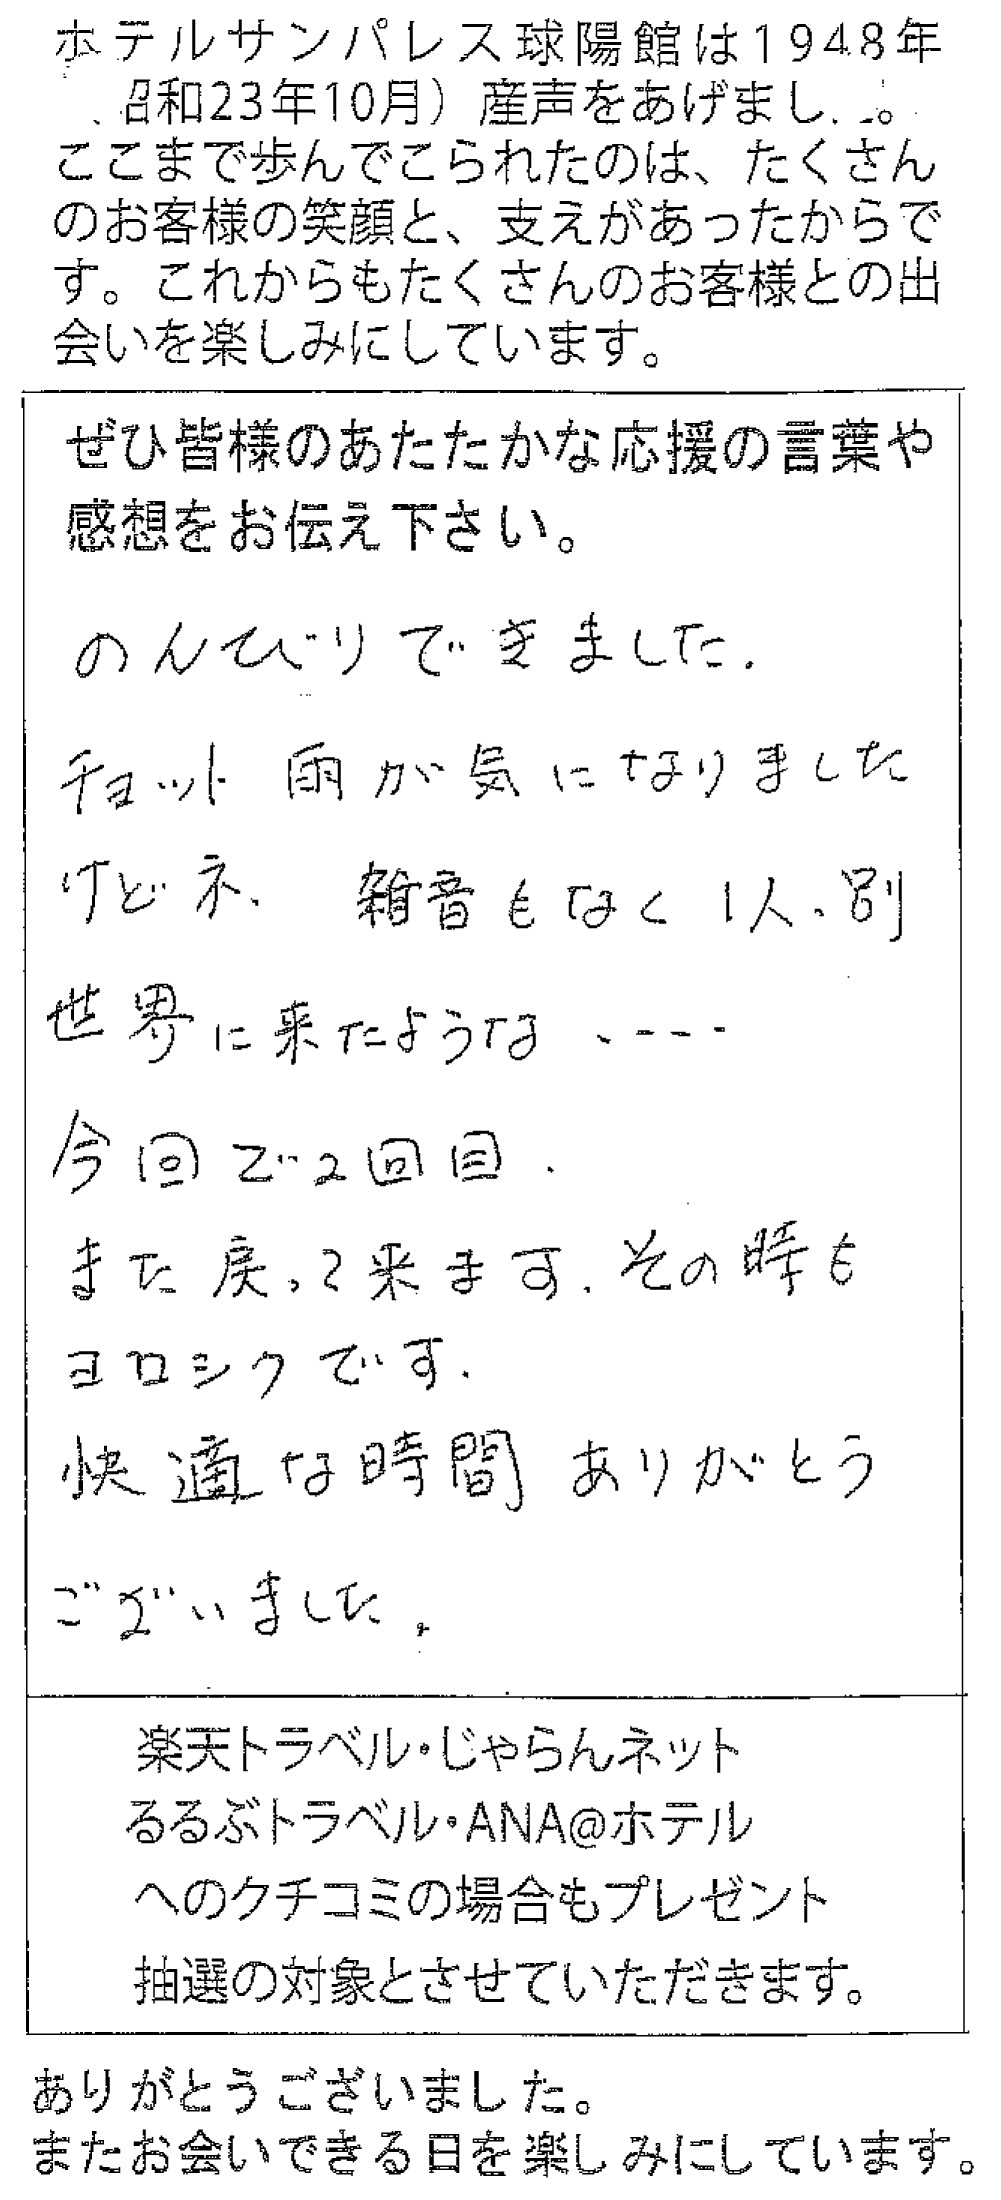 ホテルサンパレス球陽館は1948年
昭和23年10月）産声をあげまし。
ここまで歩んでこられたのは、たくさん
のお客様の笑顔と、支えがあったからで
す。これからもたくさんのお客様との出
会いを楽しみにしています。
ぜひ皆様のあたたかな応援の言葉や
感想をお伝え下さい。
のんびりできました.
チョット 雨が気になりました
けどネ、 雑音もなく1人、別
世界に来たような、----
今回で2回目.
また戻って来ます.その時も
ヨロシクです.
快適な時間 ありがとう
ございました。
楽天トラベル・じゃらんネット
るるぶトラベル・ANA@ホテル
へのクチコミの場合もプレゼント
抽選の対象とさせていただきます。
ありがとうございました。
またお会いできる日を楽しみにしています。